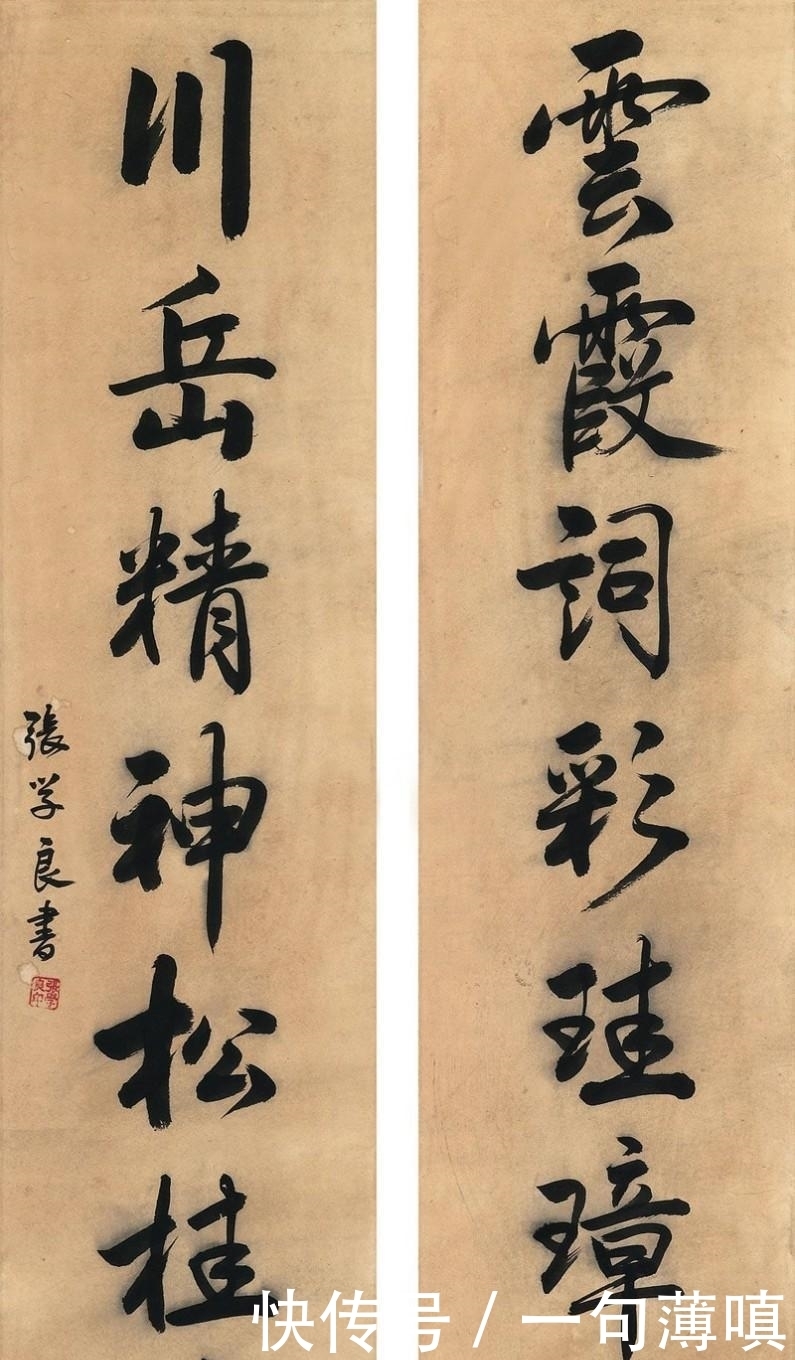 雲霞詞彩珪璋
川岳精神松桂
張学良書
張學良印
快传号 / 一句薄嗔